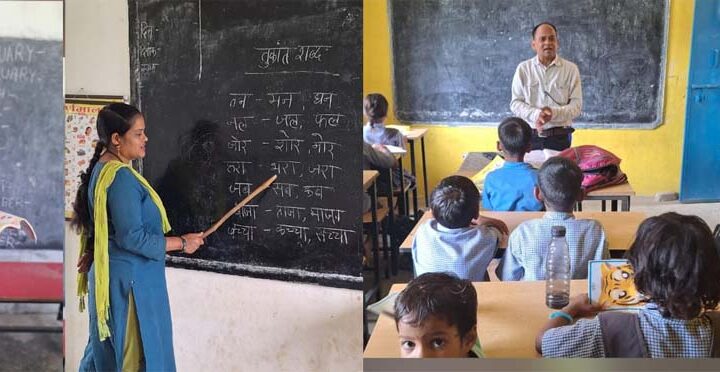 UARY-
UARY-
दिन
दिनांक
तुकांत शब्द
तन - मन, धन
जल - जल, फल
जोर - शोर, मोर
तरा - भरा, जरा
जब - सब, कब
ताजा, माजा
बच्चा - कच्चा, सच्चा